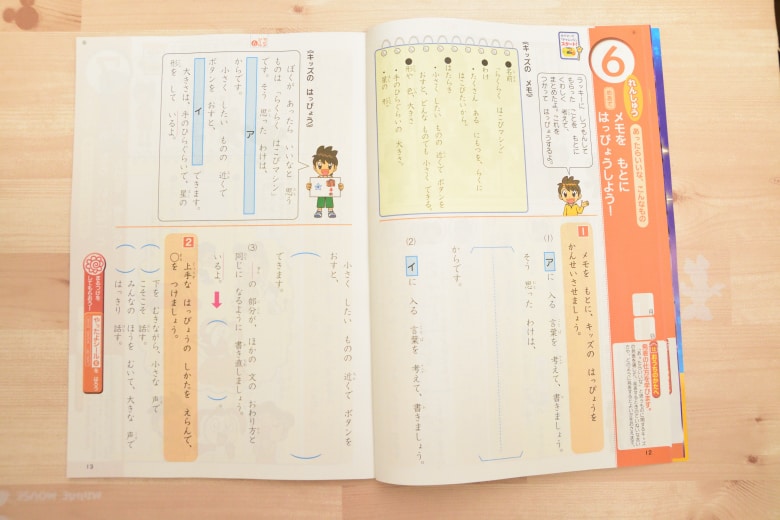 6
れんしゅう
あったらいいな、こんなもの
メモを もとに
はっぴょうしよう！
月
日
おうちのかたへ
12
ラッキーに しつもんして
もらった ことを もとに
くわしく 考えて、
まとめたよ。これを
つかって はっぴょうするよ。
〈キッズの メモ〉
●名前
・らくらく はこびマシン
●わけ
・たくさん ある にもつを、らくに
はこびたいから。
●はたらき
・小さく したい ものの 近くで ボタンを
おすと、どんな ものでも 小さく できる。
●形や 色、大きさ
・手のひらぐらいの 大きさ。
・星の 形。
1
メモを もとに、キッズの はっぴょうを
かんせいさせましょう。
(1) ア に 入る 言葉を 考えて、書きましょう。
そう 思った わけは、
からです。
(2) イ に 入る 言葉を 考えて、書きましょう。
〈キッズの はっぴょう〉
ぼくが あったら いいなと 思う
ものは「らくらく はこびマシン」
です。そう 思った わけは、
ア
からです。
小さく したい ものの 近くで
ボタンを おすと、
イ
できます。
大きさは、手のひらぐらいで、星の
形を して いるよ。
小さく したい ものの 近くで ボタンを
おすと、
できます。
(3) の 部分が、ほかの 文の おわり方と
同じに なるように 書き直しましょう。
いるよ。
2
上手な はっぴょうの しかたを えらんで、
○を つけましょう。
下を むきながら、小さな 声で
こそこそ 話す。
みんなの ほうを むいて、大きな 声で
はっきり 話す。
まるつけを
してもらおう！
やったよシール
を はろう
13